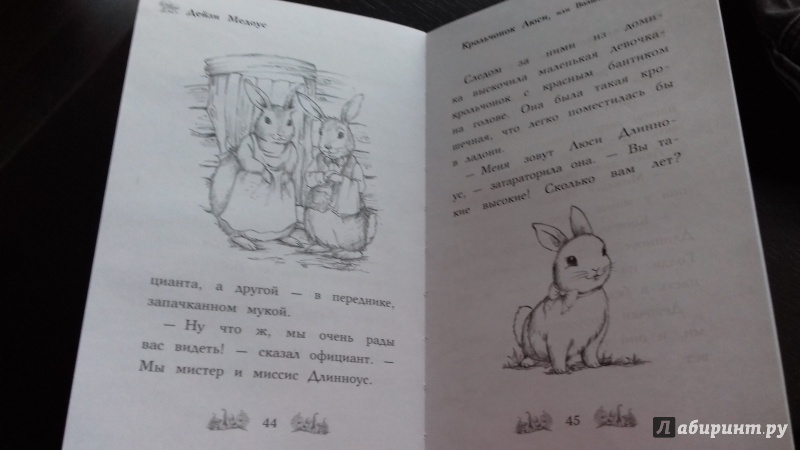 Дейзи Медоус
цианта, а другой — в переднике,
запачканном мукой.
— Ну что ж, мы очень рады
вас видеть! — сказал официант. —
Мы мистер и миссис Длинноус.
44
Крольчонок Люси, или
Следом за ними из доми-
ка выскочила маленькая девочка-
крольчонок с красным бантиком
на голове. Она была такая кро-
шечная, что легко поместилась бы
в ладони.
— Меня зовут Люси Длинно-
ус, — затараторила она. — Вы та-
кие высокие! Сколько вам лет?
45
Лабиринт.ру